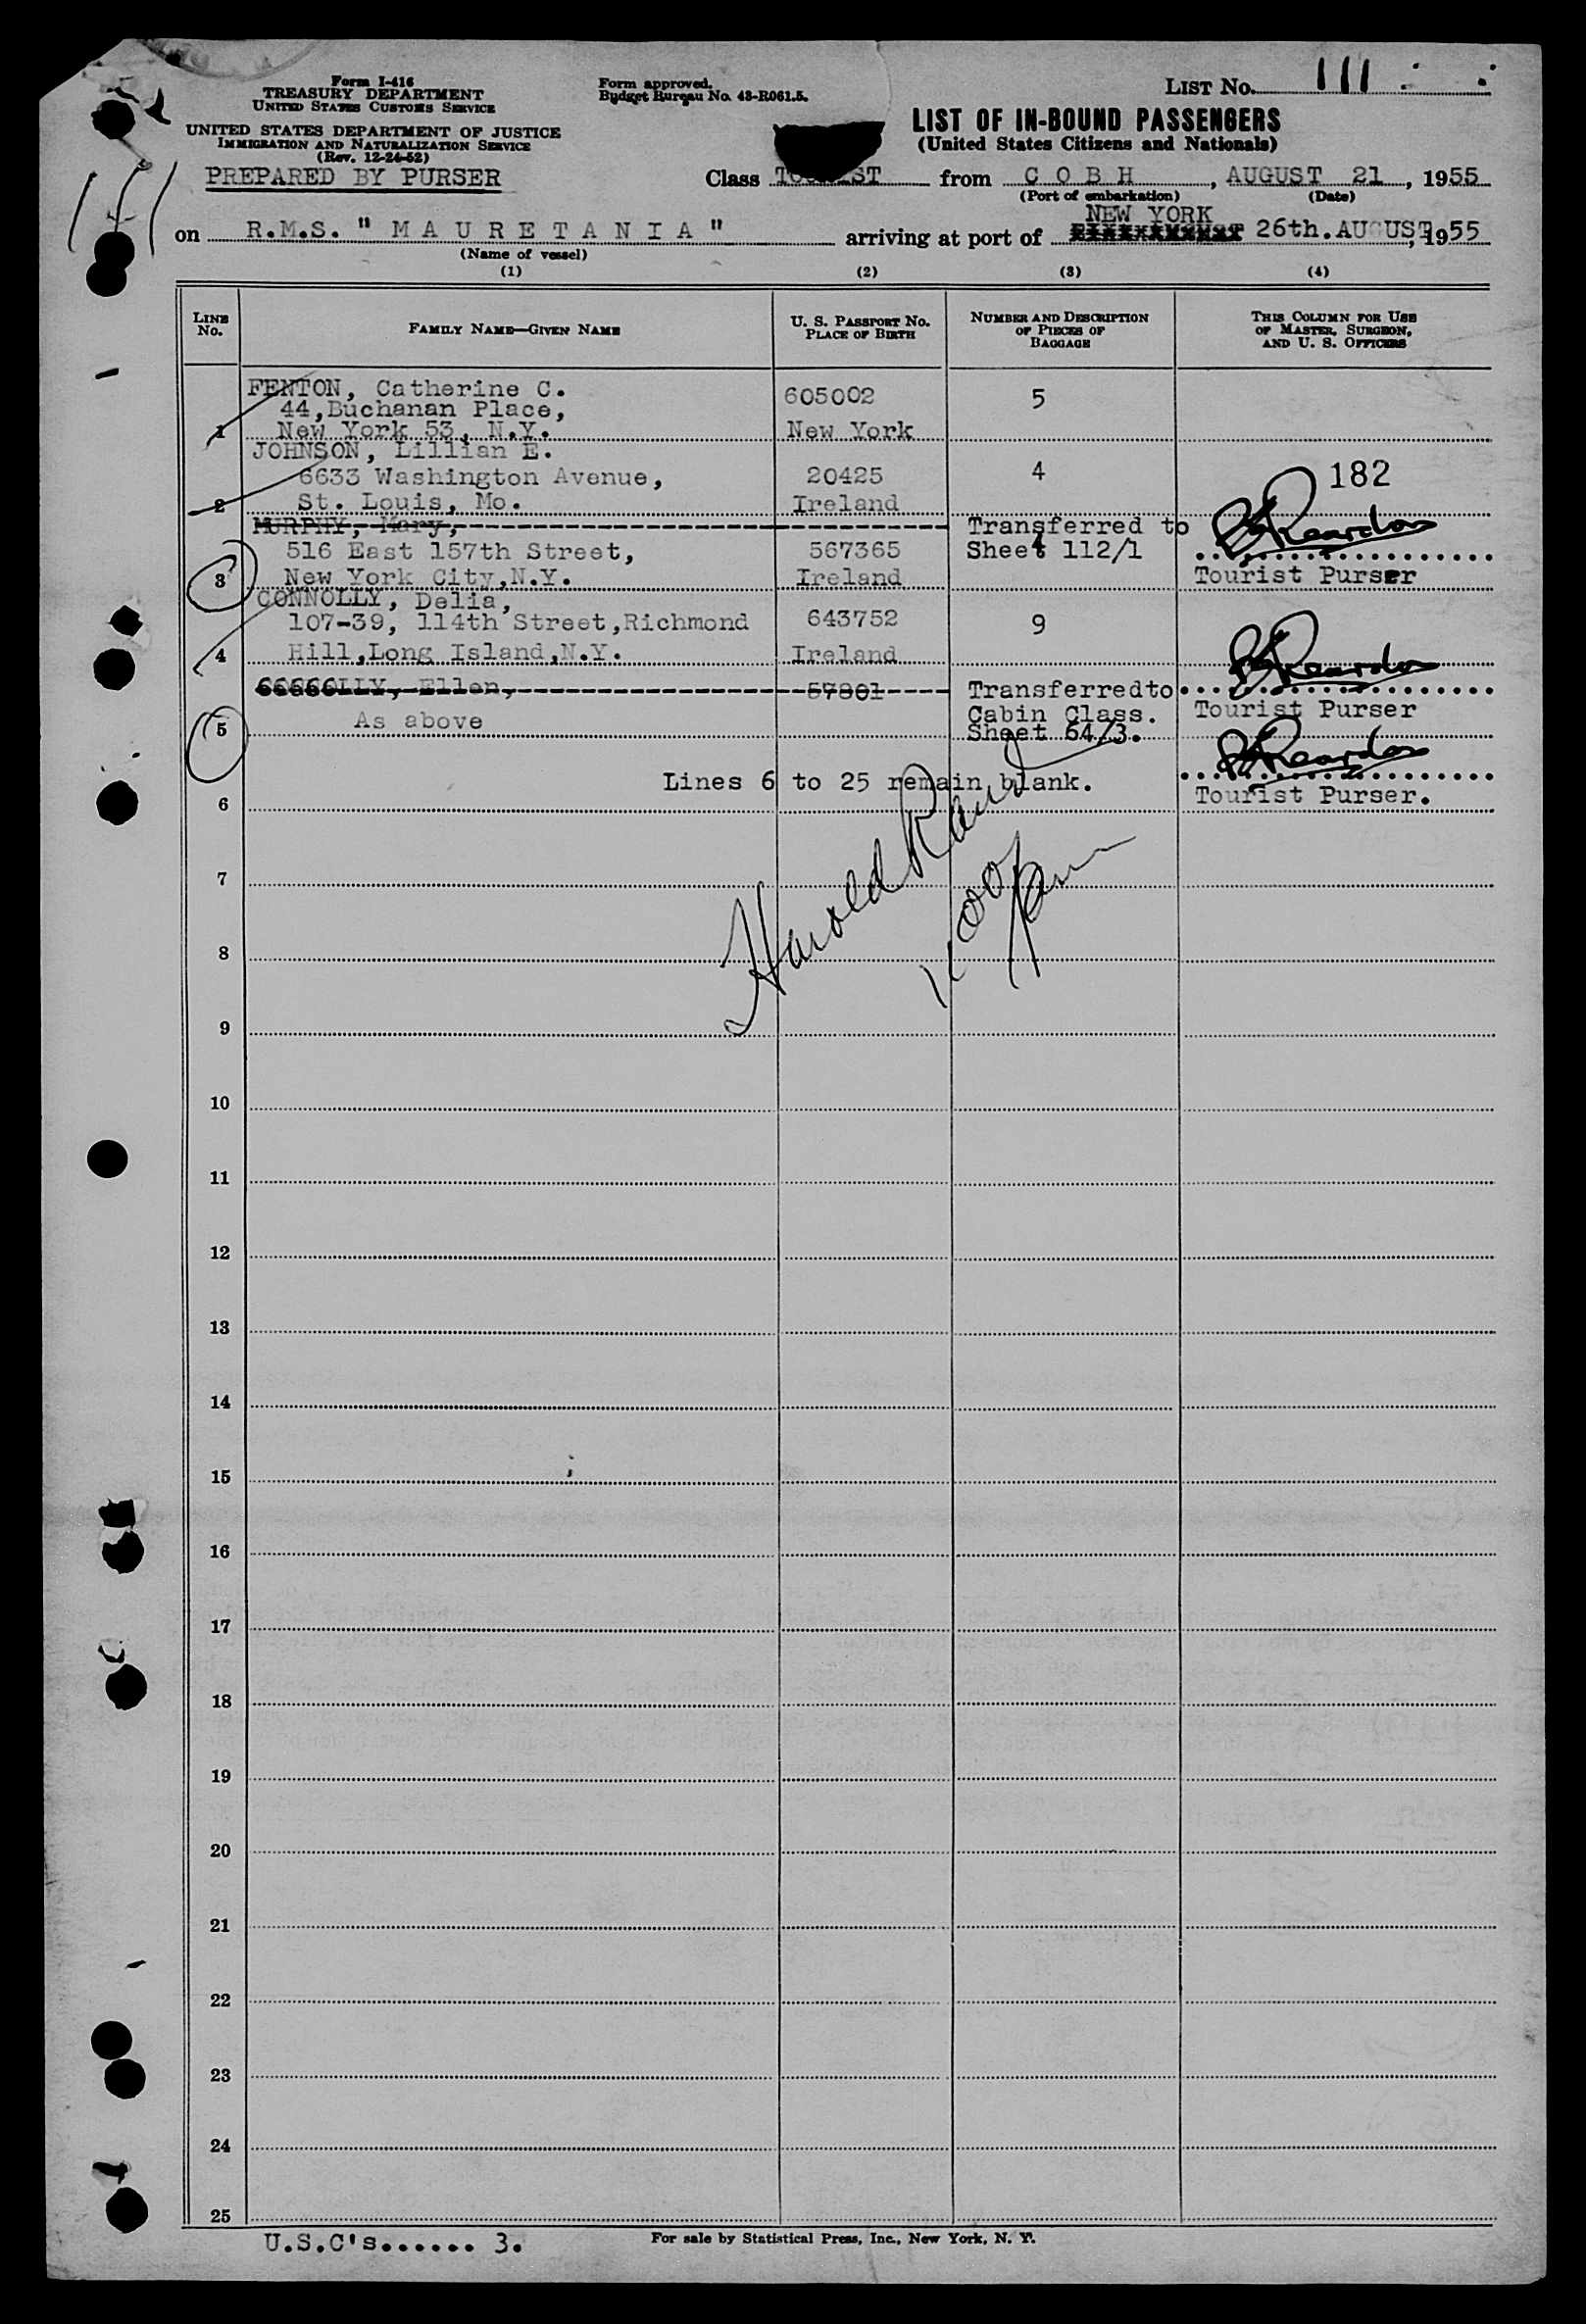 Form I-416
TREASURY DEPARTMENT
UNITED STATES CUSTOMS SERVICE
UNITED STATES DEPARTMENT OF JUSTICE
IMMIGRATION AND NATURALIZATION SERVICE
(Rev. 12-24-52)
PREPARED BY PURSER
Form approved.
Budget Bureau No. 43-R061.5.
LIST No. 111
LIST OF IN-BOUND PASSENGERS
(United States Citizens and Nationals)
111
Class TOURIST from C O B H, AUGUST 21, 1955
(Port of embarkation) (Date)
NEW YORK
on R.M.S. " M A U R E T A N I A " arriving at port of 26th. AUGUST, 1955
(Name of vessel)
(1) (2) (3) (4)
LINE No. FAMILY NAME—GIVEN NAME U. S. PASSPORT No. PLACE OF BIRTH NUMBER AND DESCRIPTION OF PIECES OF BAGGAGE THIS COLUMN FOR USE OF MASTER, SURGEON, AND U. S. OFFICERS
FENTON, Catherine C. 605002 5
44, Buchanan Place,
1 New York 53, N.Y. New York
JOHNSON, Lillian E.
6633 Washington Avenue, 20425 4 182
2 St. Louis, Mo. Ireland
MURPHY, Mary, Transferred to
516 East 157th Street, 567365 Sheet 112/1
3 New York City,N.Y. Ireland Tourist Purser
CONNOLLY, Delia,
107-39, 114th Street,Richmond 643752 9
4 Hill,Long Island,N.Y. Ireland
OLLY, Ellen, 57801 Transferredto
As above Cabin Class. Tourist Purser
5 Sheet 64/3.
Lines 6 to 25 remain blank.
6 Tourist Purser.
Harold
7
8
9
10
11
12
13
14
15
16
17
18
19
20
21
22
23
24
25
U.S.C's...... 3. For sale by Statistical Press, Inc., New York, N. Y.